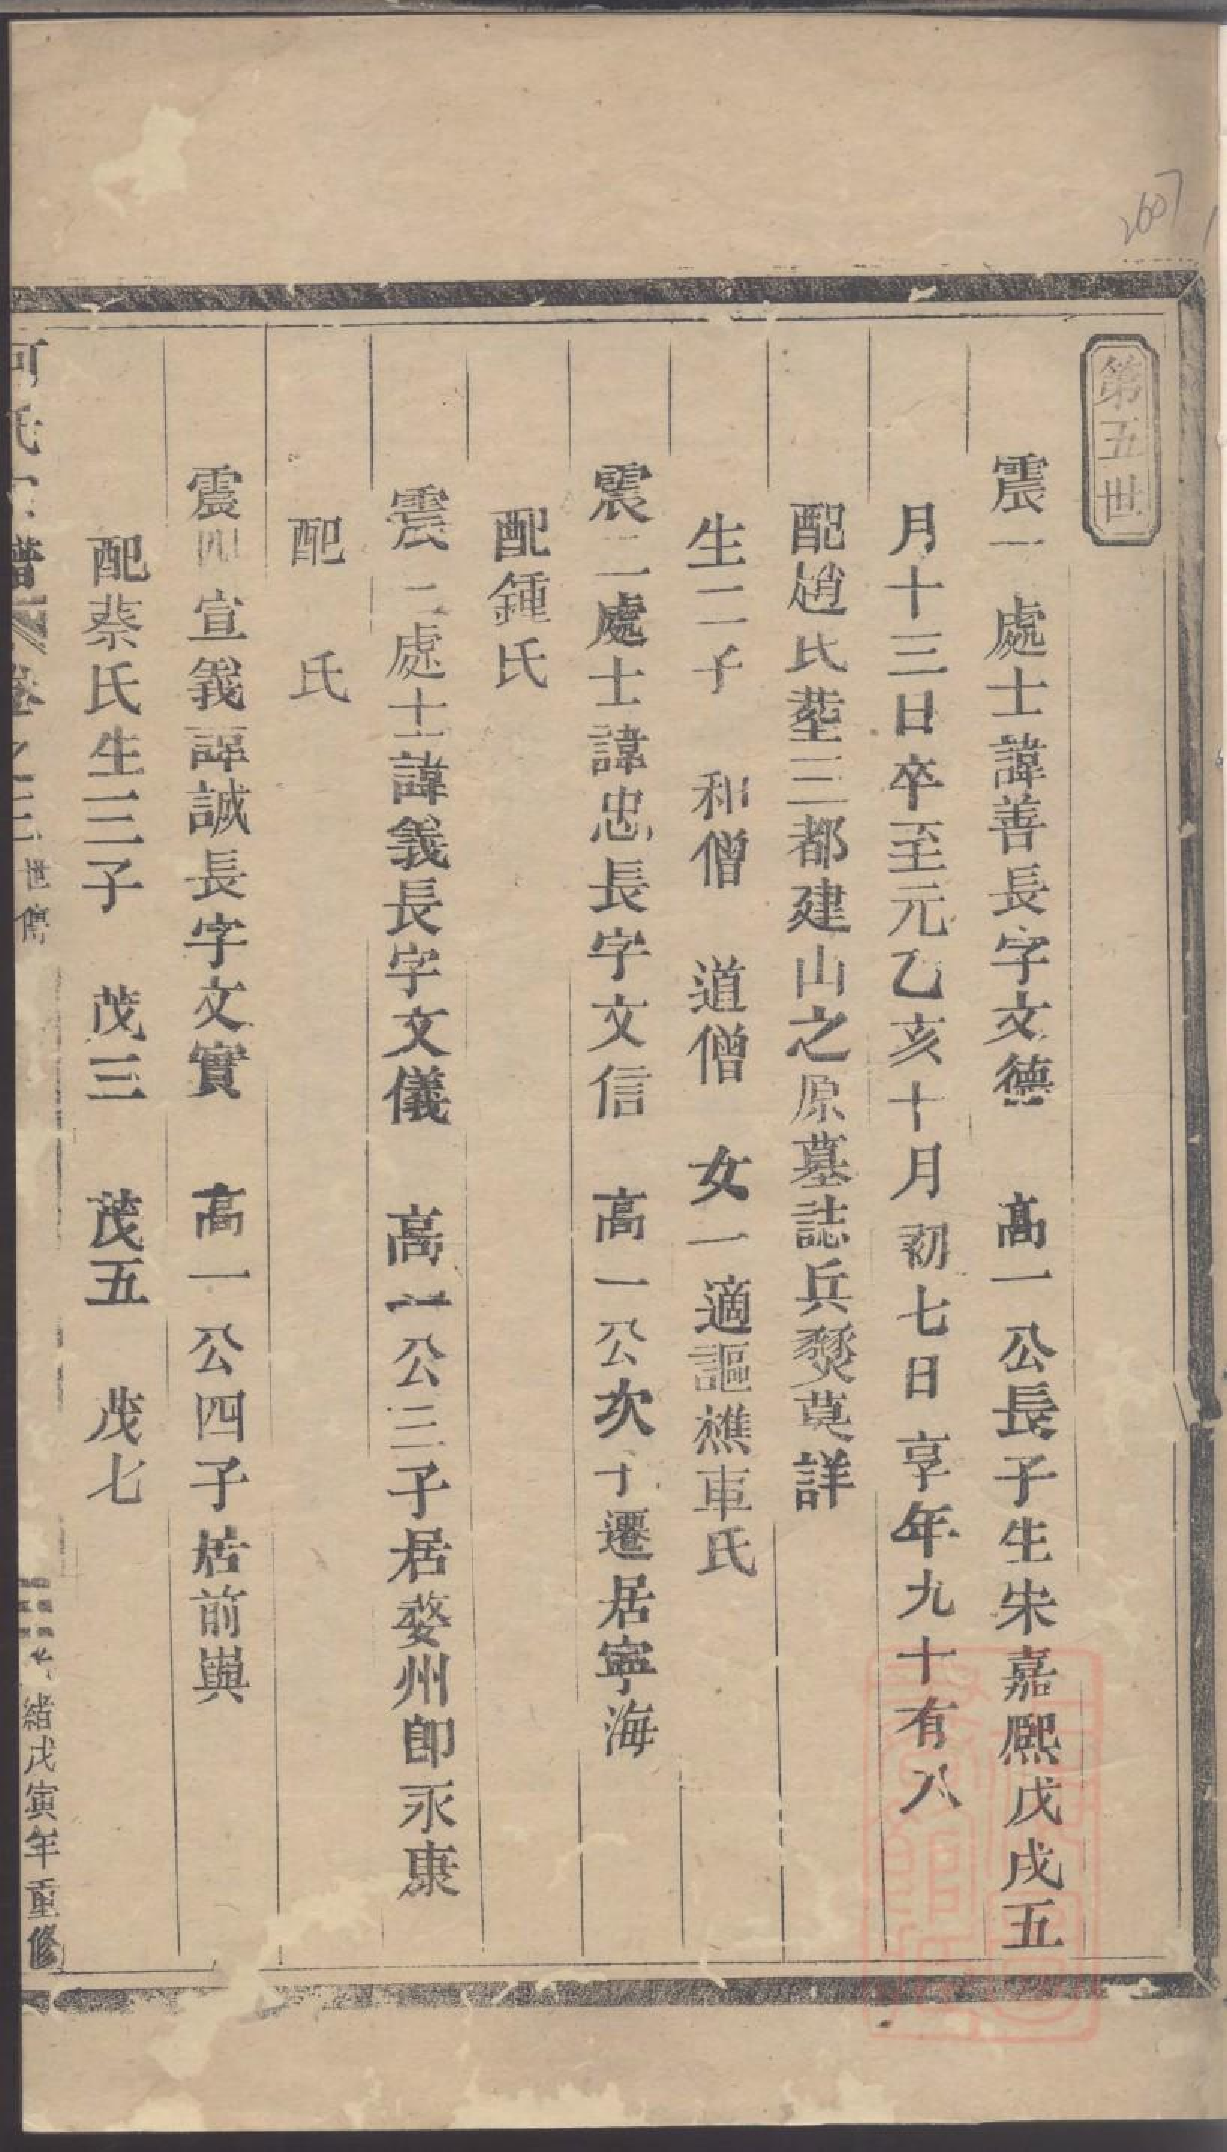 2607
第五世
震一處士諱善長字文德 高一公長子生宋嘉熙戊戌五
月十三日卒至元乙亥十月初七日享年九十有八
配趙氏塟三都建山之原墓誌兵燹莫詳
生二子 和僧 道僧 女一適謳樵車氏
震二處士諱忠長字文信 高一公次子遷居寧海
配鍾氏
震三處士諱義長字文儀 高一公三子居婺州卽永康
配 氏
震四宣義諱誠長字文實 高一公四子居前嶼
配蔡氏生三子 茂三 茂五 茂七
何氏宗譜 卷之三 世傳 緒戊寅年重修